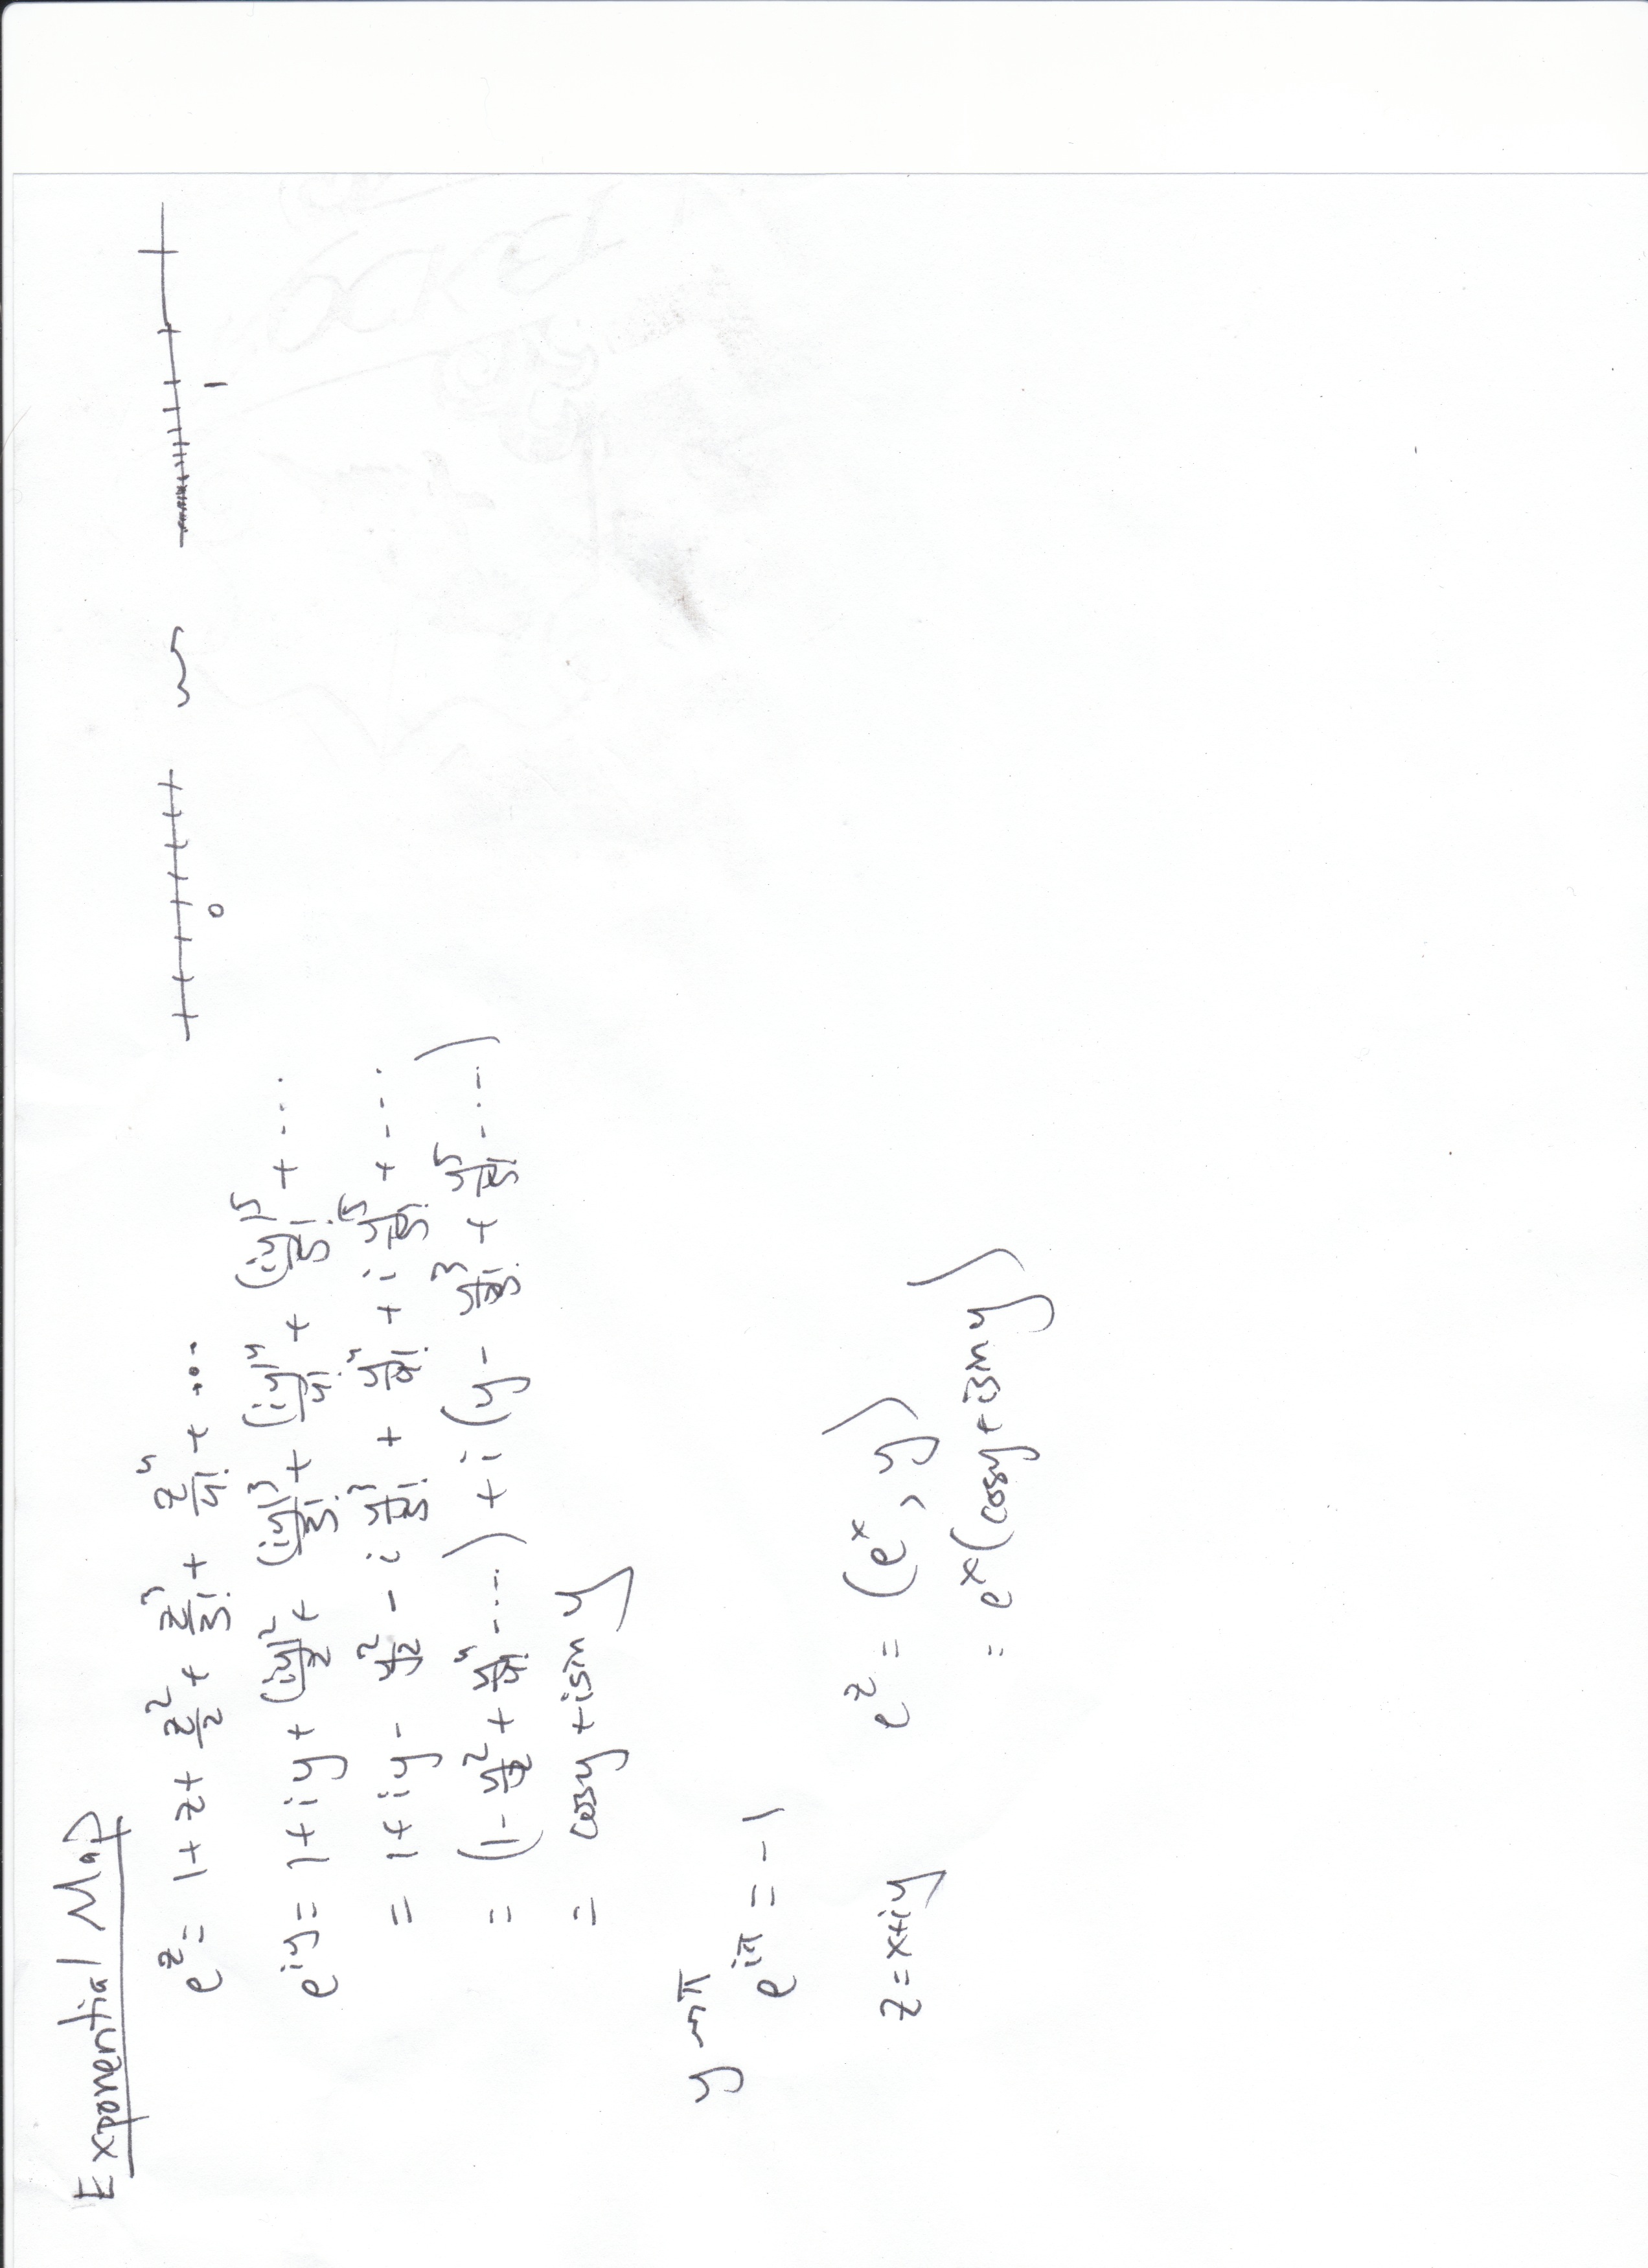 Exponential Map
e^z = 1 + z + z^2/2 + z^3/3! + z^4/4! + ....
0 1
e^iy = 1 + iy + (iy)^2/2 + (iy)^3/3! + (iy)^4/4! + (iy)^5/5! + ....
= 1 + iy - y^2/2 - i y^3/3! + y^4/4! + i y^5/5! + ....
= (1 - y^2/2 + y^4/4! ....) + i (y - y^3/3! + y^5/5! ....)
= cosy + isin y
y ~ π
e^iπ = -1
z = x+iy e^z = (e^x, y)
= e^x (cosy + isin y)